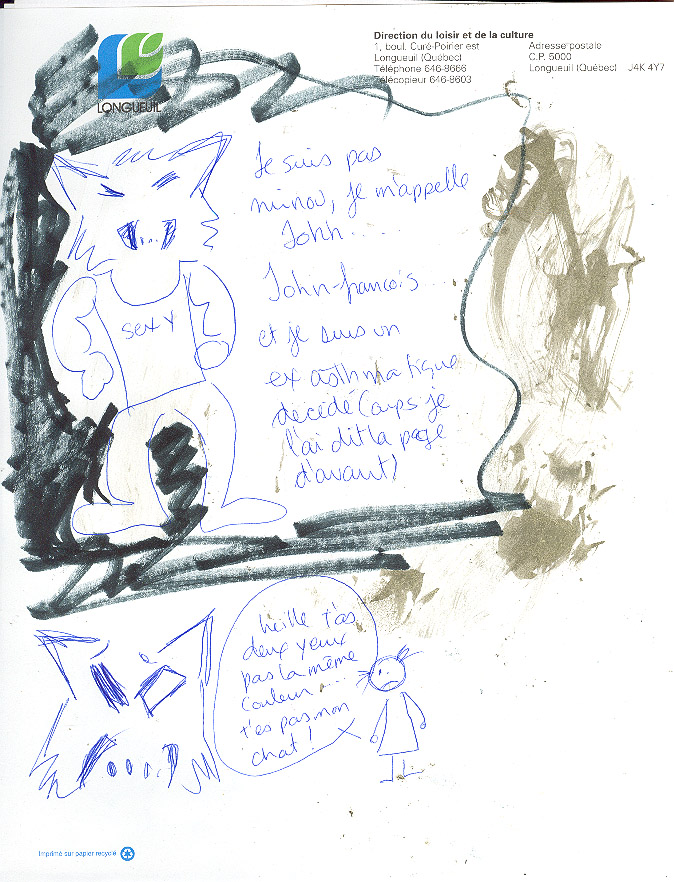 LONGUEUIL
Direction du loisir et de la culture
1, boul. Curé-Poirier est
Longueuil (Québec)
Téléphone 646-8666
Télécopieur 646-8603
Adresse postale
C.P. 5000
Longueuil (Québec) J4K 4Y7
Je suis pas
minou, je m'appelle
John....
John-francois...
et je suis un
ex asthmatique
décédé (oups je
l'ai dit la page
d'avant)
sexy
heille t'as
deux yeux
pas la même
couleur....
t'es pas mon
chat!
Imprimé sur papier recyclé